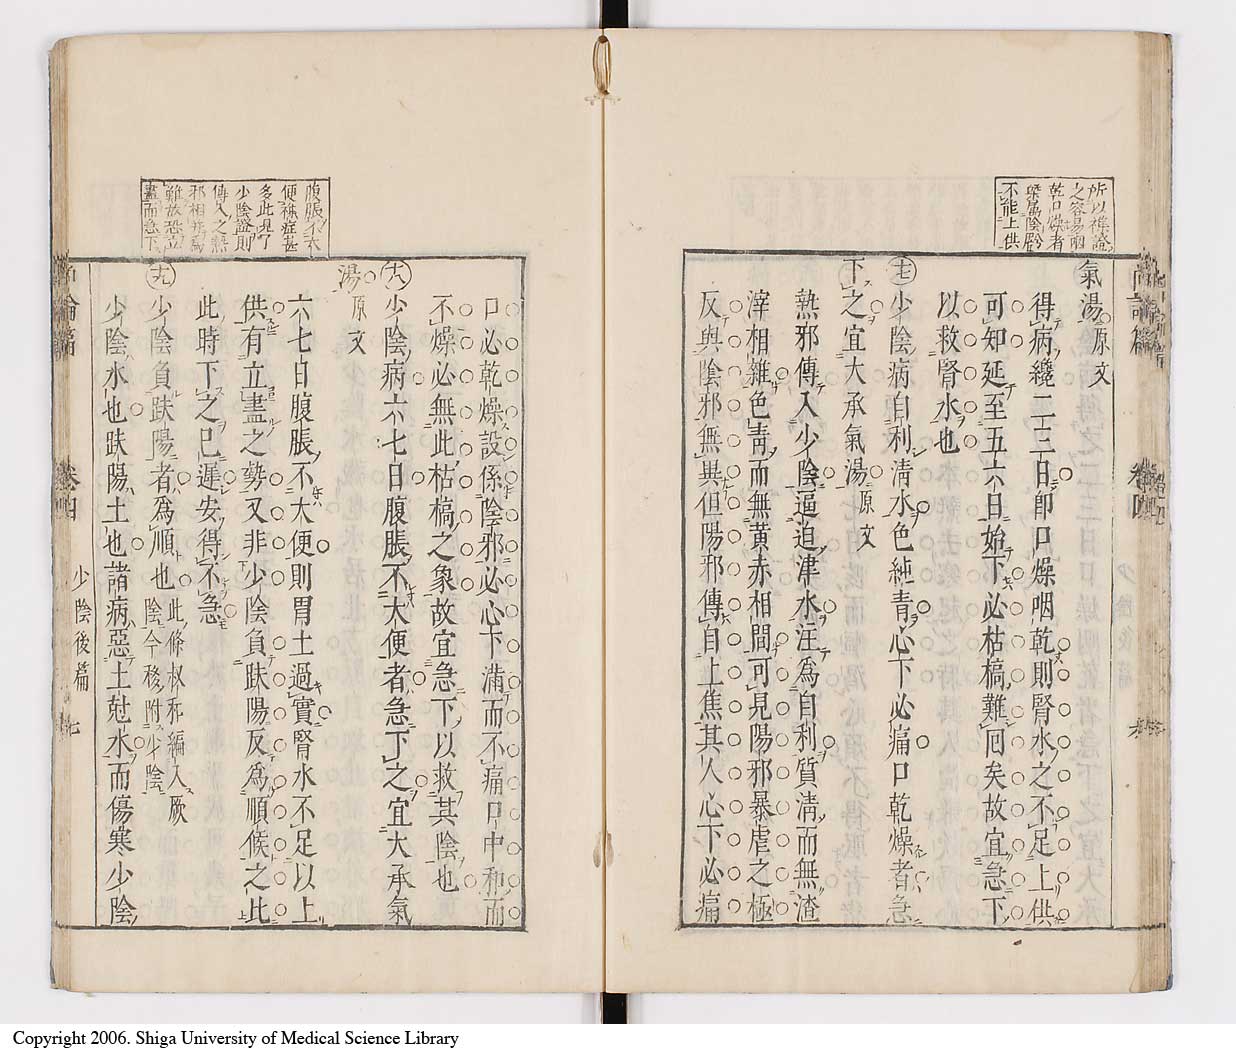 所以雜證
之容易兩
乾口燥者
槩属陰虧
不能上供
氣湯原文
得病纔二三日卽口燥咽乾則腎水之不足上供
可知延至五六日始下必枯槁難回矣故宜急下
以救腎水也
七十 少陰病自利淸水色純青心下必痛口乾燥者急
下之宜大承氣湯原文
熱邪傳入少陰逼迫津水注爲自利質淸而無渣
滓相雜色青而無黃赤相間可見陽邪暴虐之極
反與陰邪無異但陽邪傳自上焦其人心下必痛
腹脹不大
便雜症甚
多此見了
少陰證則
傳入之熱
邪相
難放
盡而急下
口必乾燥設係陰邪必心下滿而不痛口中和而
不燥必無此枯槁之象故宜急下以救其陰也
十八 少陰病六七日腹脹不大便者急下之宜大承氣
湯原文
六七日腹脹不大便則胃土過實腎水不足以上
供有立盡之勢又非少陰負趺陽反爲順候之比
此時下之已遲安得不急
十九 少陰負趺陽者爲順也 此條叔和編入厥
陰今移附少陰
少陰水也趺陽土也諸病惡土尅水而傷寒少陰
論篇 卷四 少陰後篇